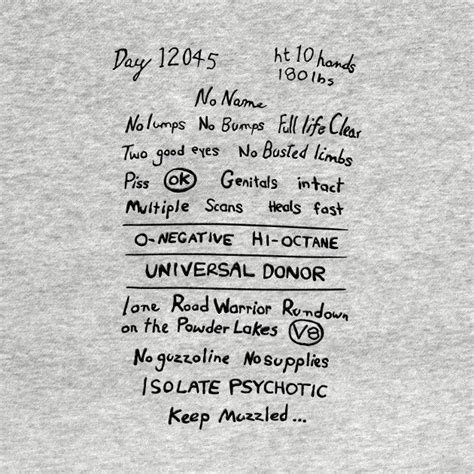 Day 12045 ht 10 hands
180 lbs
No Name
No lumps No Bumps Full life Clear
Two good eyes No Busted limbs
Piss OK Genitals intact
Multiple Scans Heals fast
O-NEGATIVE HI-OCTANE
UNIVERSAL DONOR
lone Road Warrior Rundown
on the Powder Lakes V8
No guzzoline No supplies
ISOLATE PSYCHOTIC
Keep Muzzled...